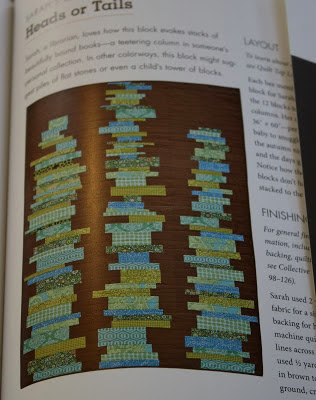 SARAH
Heads or Tails
Sarah, a librarian, loves how this block evokes stacks of
beautifully bound books—a teetering column in someone's
personal collection. In other colorways, this block might sug-
gest piles of flat stones or even a child's tower of blocks.
LAYOUT
To learn about
Quilt Top
Each bee
block for
the 12 blocks
columns. Her
36" x 60"—per
baby to snuggle
the autumn
and the days
Notice how the
blocks don't
stacked to the
FINISHING
For general fin
mation, inclu
backing, quilti
see Collective
98–126).
Sarah used 2
fabric for a si
backing for h
machine quil
lines across
used ½ yard
in brown to
ground, cr